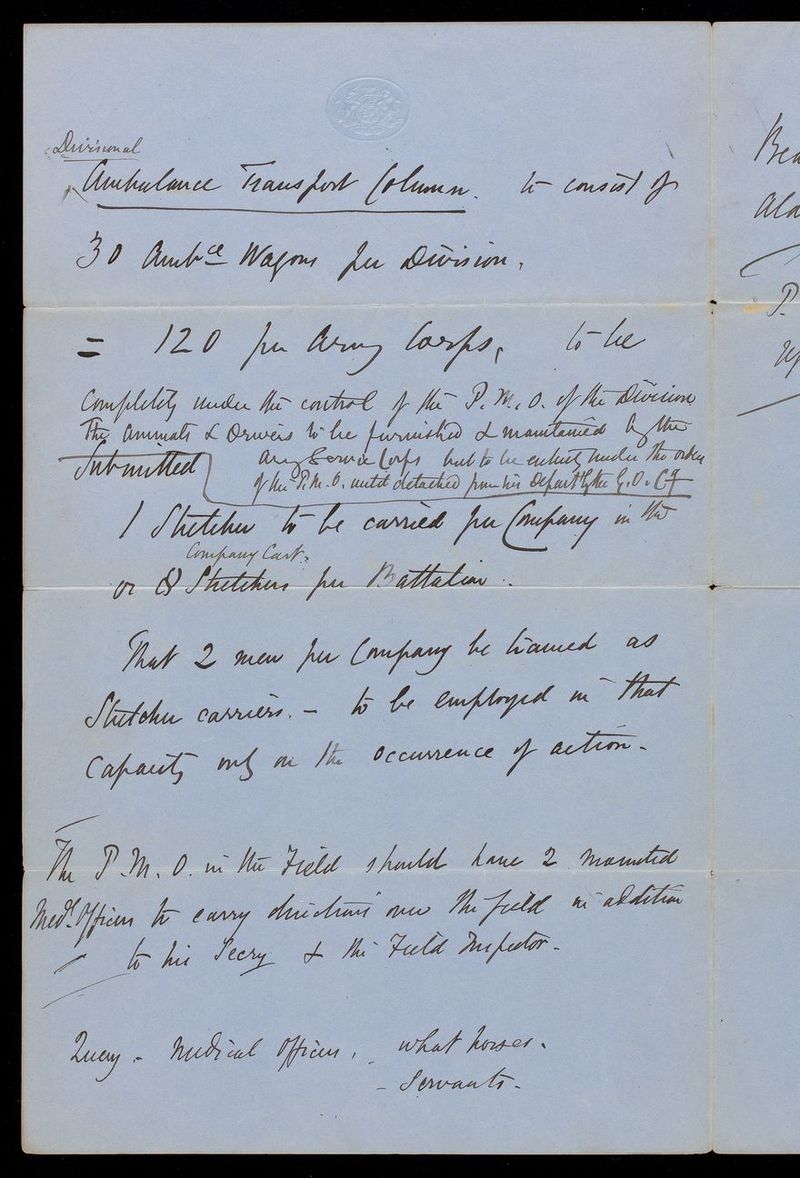 Divisional
Ambulance Transport Column. to consist of
30 Ambce Wagons per Division.
= 120 per Army Corps, to be
Completely under the control of the P.M.O. of the Division
The animals & Drivers to be furnished & maintained by the
Submitted Army Service Corps but to be entirely under the orders
of the P.M.O. until detached from his Departt by the G.O.Cg
1 Stretcher to be carried per Company in the
Company Cart.
or 8 Stretchers per Battalion.
That 2 men per Company be trained as
Stretcher carriers. – to be employed in that
Capacity only on the occurrence of action –
The P.M.O. in the Field should have 2 mounted
Medl Officers to carry directions over the field in addition
to his Secry & the Field Inspector –
Query – Medical Officers, what horses –
– Servants –
P.